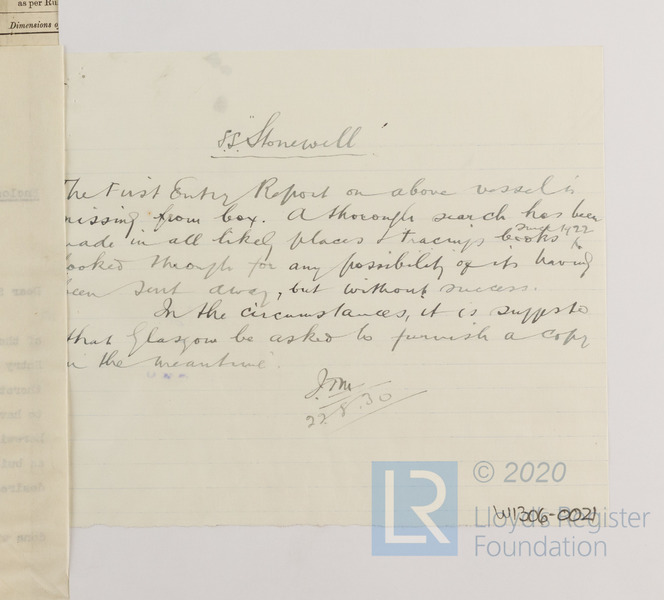 as per Ru
Dimensions o
S.S. "Stonewill"
The First Entry Report on above vessel is
missing from box. A thorough search has been
made in all likely places & tracings books since 1922
looked through for any possibility of its having
been sent away, but without success.
In the circumstances, it is suggested
that Glasgow be asked to furnish a copy
in the meantime.
22.8.30
LR
© 2020
Lloyd's Register
Foundation
W1306-0021